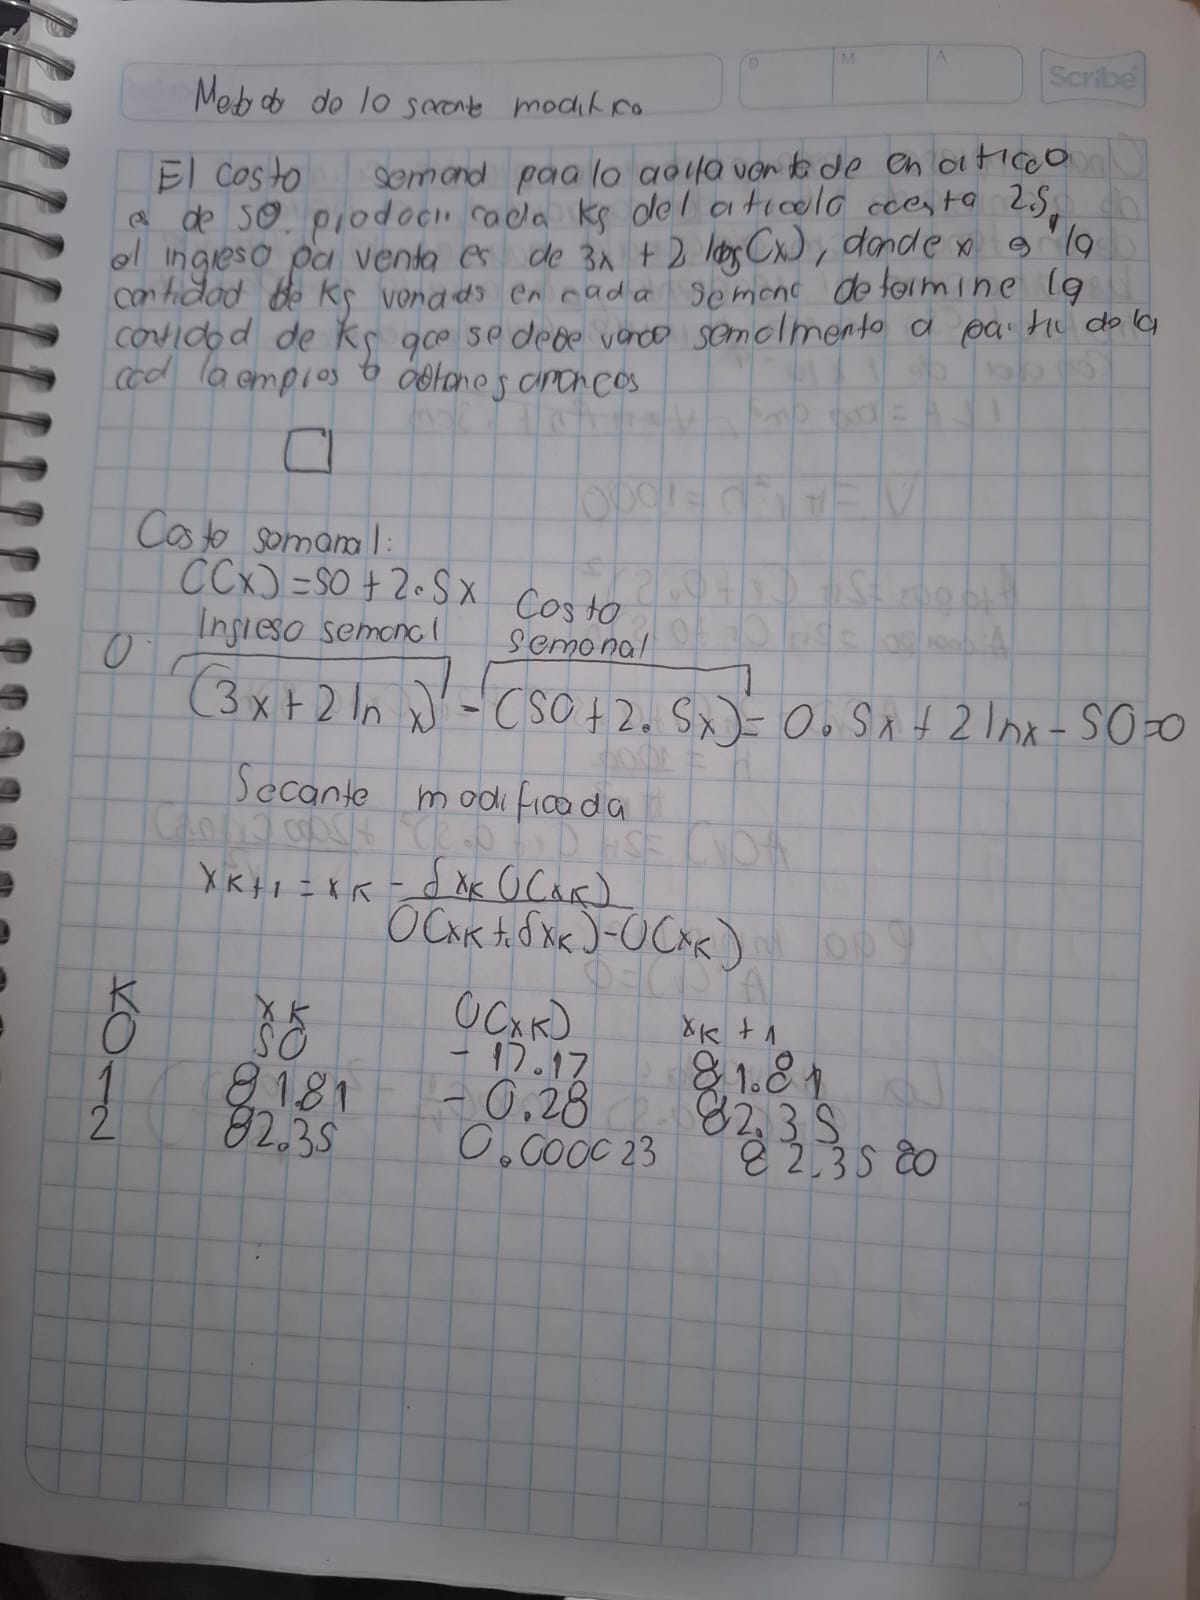 D M A Scribe
Metodo de lo secante modifica
El costo semanal para la venta de en articoo
es de 50. producir cada Kg del articolo coesta 2.5,
el ingreso pa venta es de 3x + 2 log(x), donde x es la
cantidad de Kg vendds en cada semana determine la
cantidad de Kg que se debe vender semalmente a partir de la
cual la empresa obtiene
Costo semanal:
C(x) = 50 + 2.5x
Ingreso semanal Costo semanal
U
(3x + 2 ln x) - (50 + 2.5x) = 0.5x + 2 ln x - 50 = 0
Secante modificada
xK+1 = xK - δxK U(xK) / U(xK + δxK) - U(xK)
K xK U(xK) xK+1
0 50 -17.17 81.81
1 81.81 -0.28 82.35
2 82.35 0.000023 82.3580